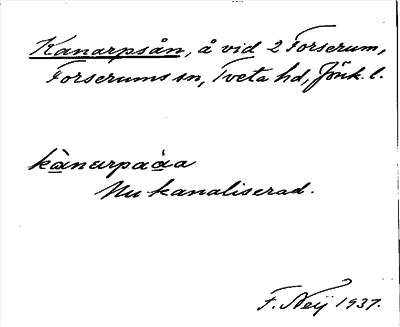 Kanarpsån, å vid 2 Forserum,
Forserums sn, Tveta hd, Jönk. l.
kànarpaàa
Nu kanaliserad.
F. Neij 1937.